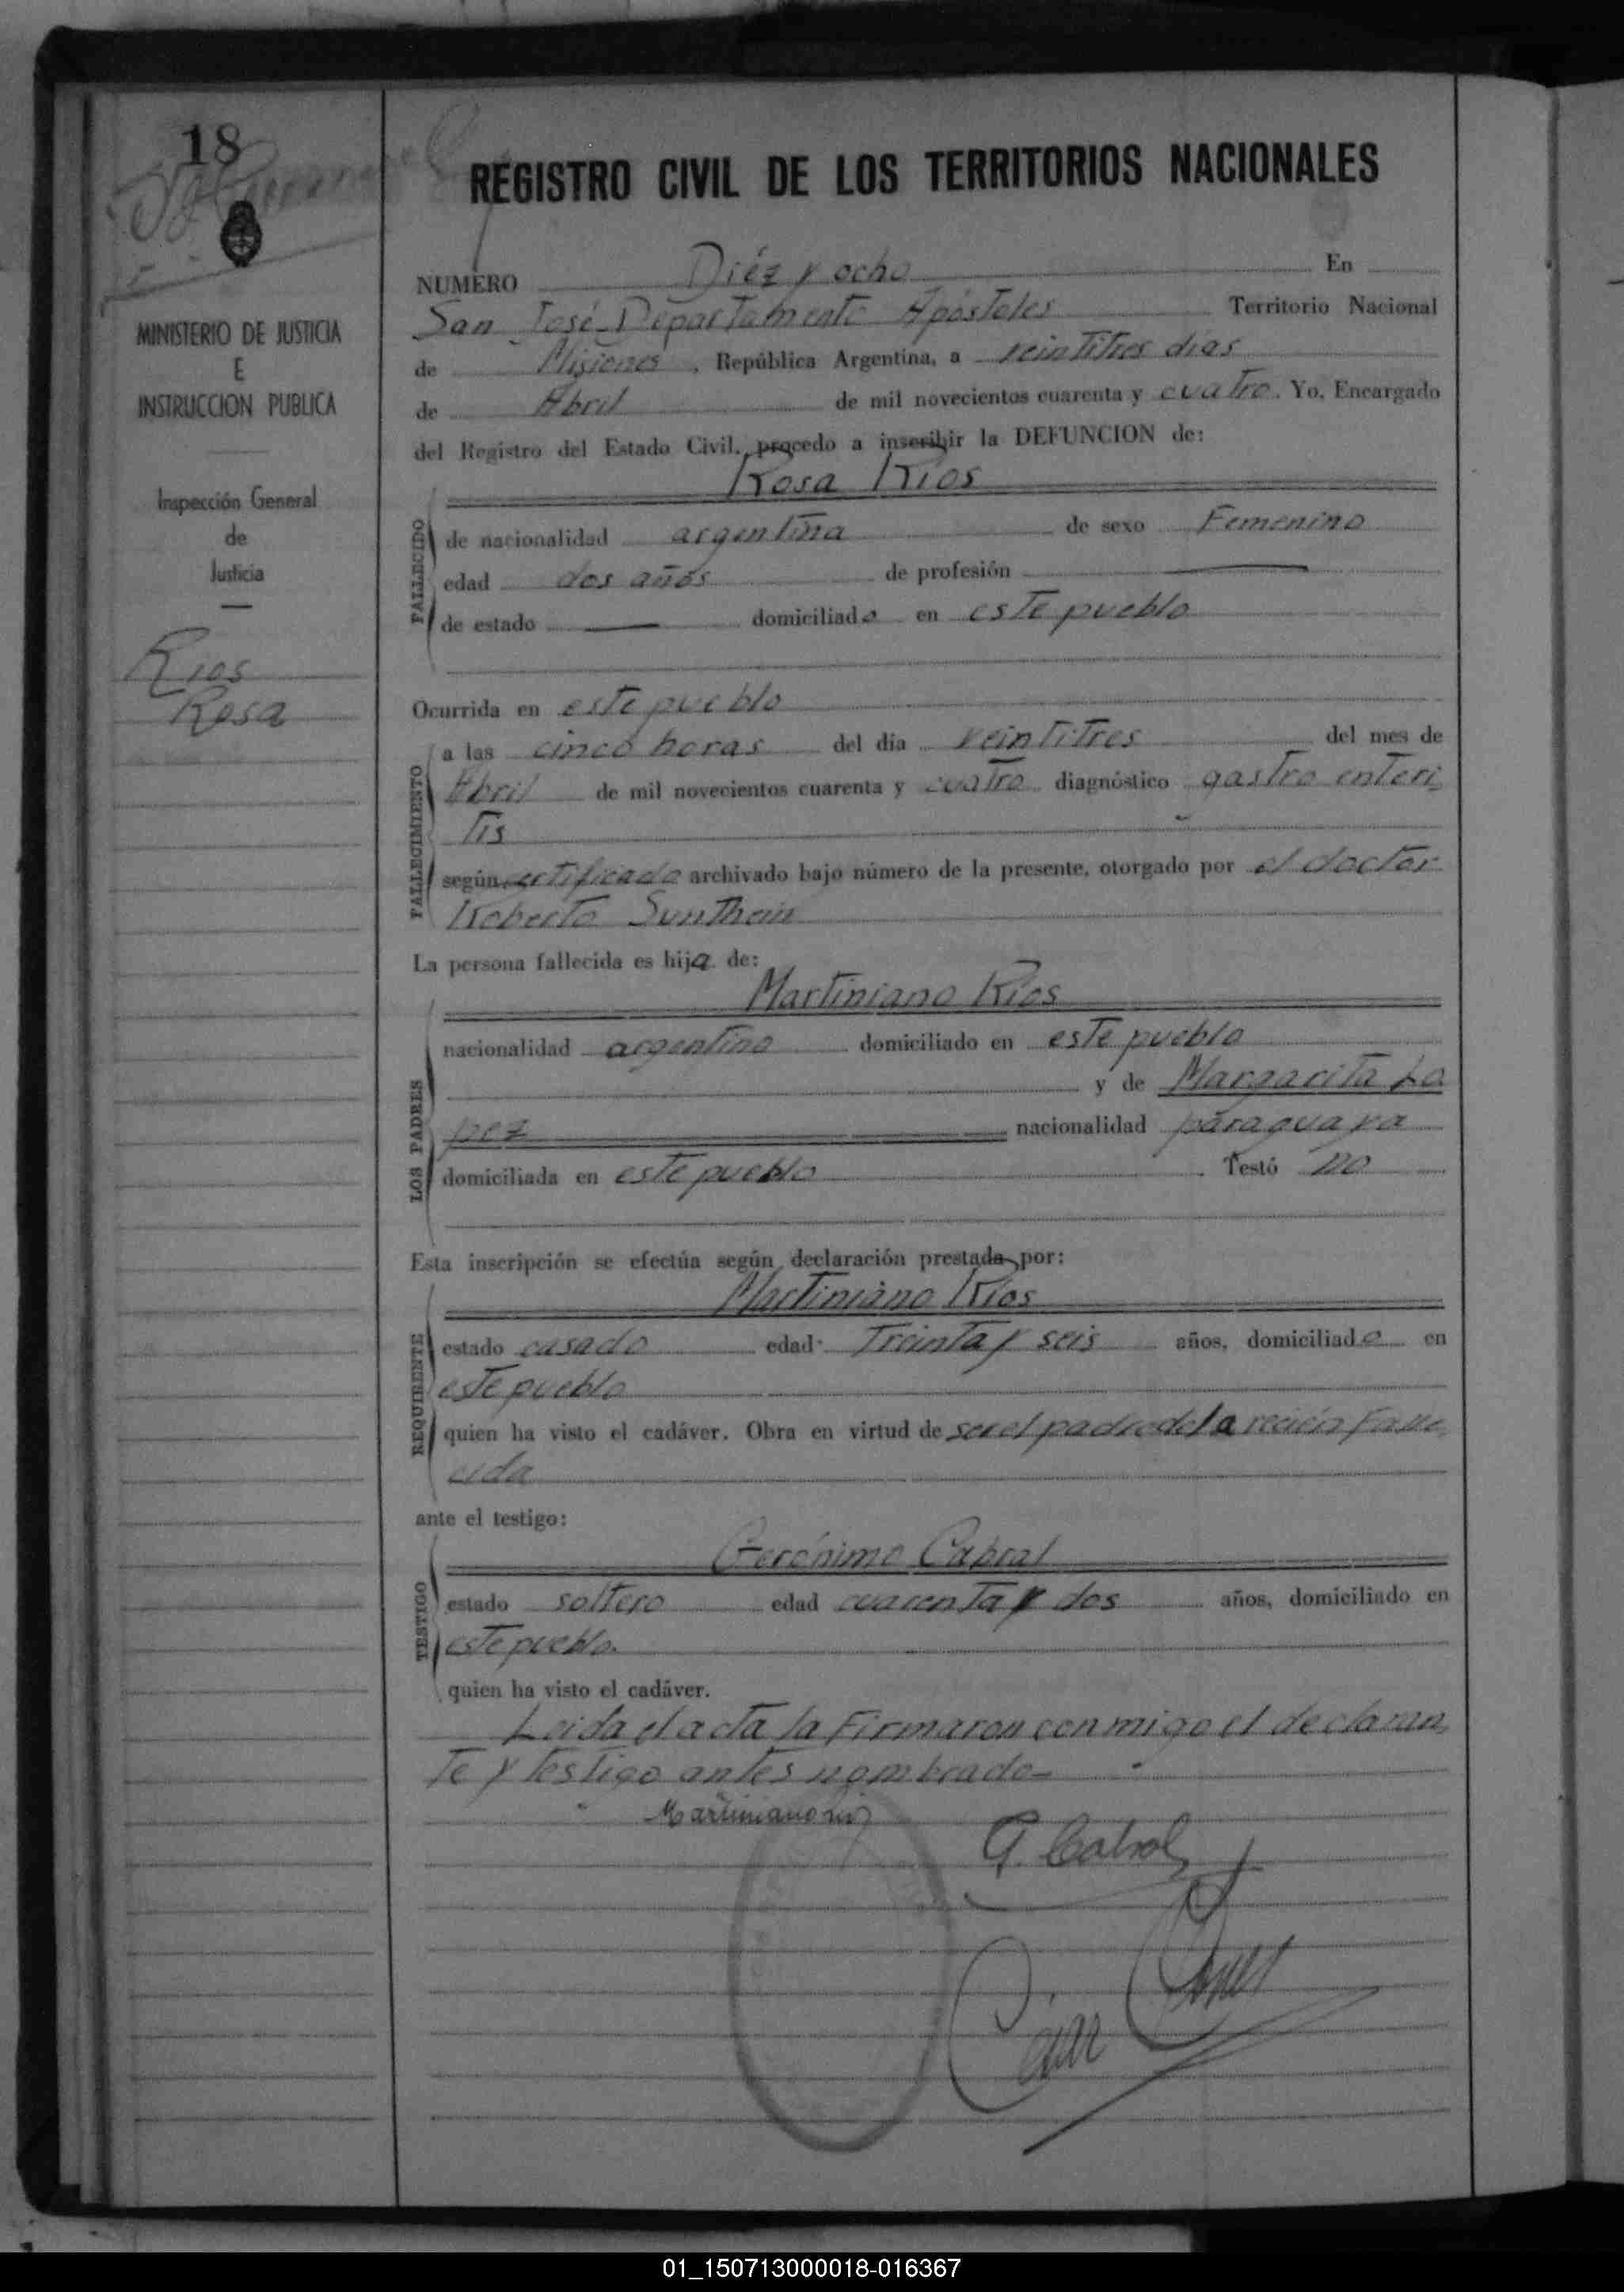 18
REGISTRO CIVIL DE LOS TERRITORIOS NACIONALES
MINISTERIO DE JUSTICIA
E
INSTRUCCION PUBLICA
Inspección General
de
Justicia
Rios
Rosa
NUMERO Diéz y ocho En
San José Departamento Apóstoles Territorio Nacional
de Misiones, República Argentina, a veintitres dias
de Abril de mil novecientos cuarenta y cuatro. Yo, Encargado
del Registro del Estado Civil, procedo a inscribir la DEFUNCION de:
Rosa Rios
FALLECIDO
de nacionalidad argentina de sexo Femenino
edad dos años de profesión —
de estado — domiciliado en este pueblo
Ocurrida en este pueblo
FALLECIMIENTO
a las cinco horas del día veintitres del mes de
Abril de mil novecientos cuarenta y cuatro diagnóstico gastro enteri
tis
según certificado archivado bajo número de la presente, otorgado por el doctor
Roberto
La persona fallecida es hija de:
Martiniano Rios
LOS PADRES
nacionalidad argentino domiciliado en este pueblo
y de Margarita Lo
pez nacionalidad paraguaya
domiciliada en este pueblo Testó no
Esta inscripción se efectúa según declaración prestada por:
Martiniano Rios
REQUIRENTE
estado casado edad treinta y seis años, domiciliado en
este pueblo
quien ha visto el cadáver. Obra en virtud de ser el padre de la recién falle
cida
ante el testigo:
Gerónimo Cabral
TESTIGO
estado soltero edad cuarenta y dos años, domiciliado en
este pueblo.
quien ha visto el cadáver.
Leida el acta la firmaron con migo el declaran
te y testigo antes nombrado-
Martiniano
G. Cabral
01_150713000018-016367